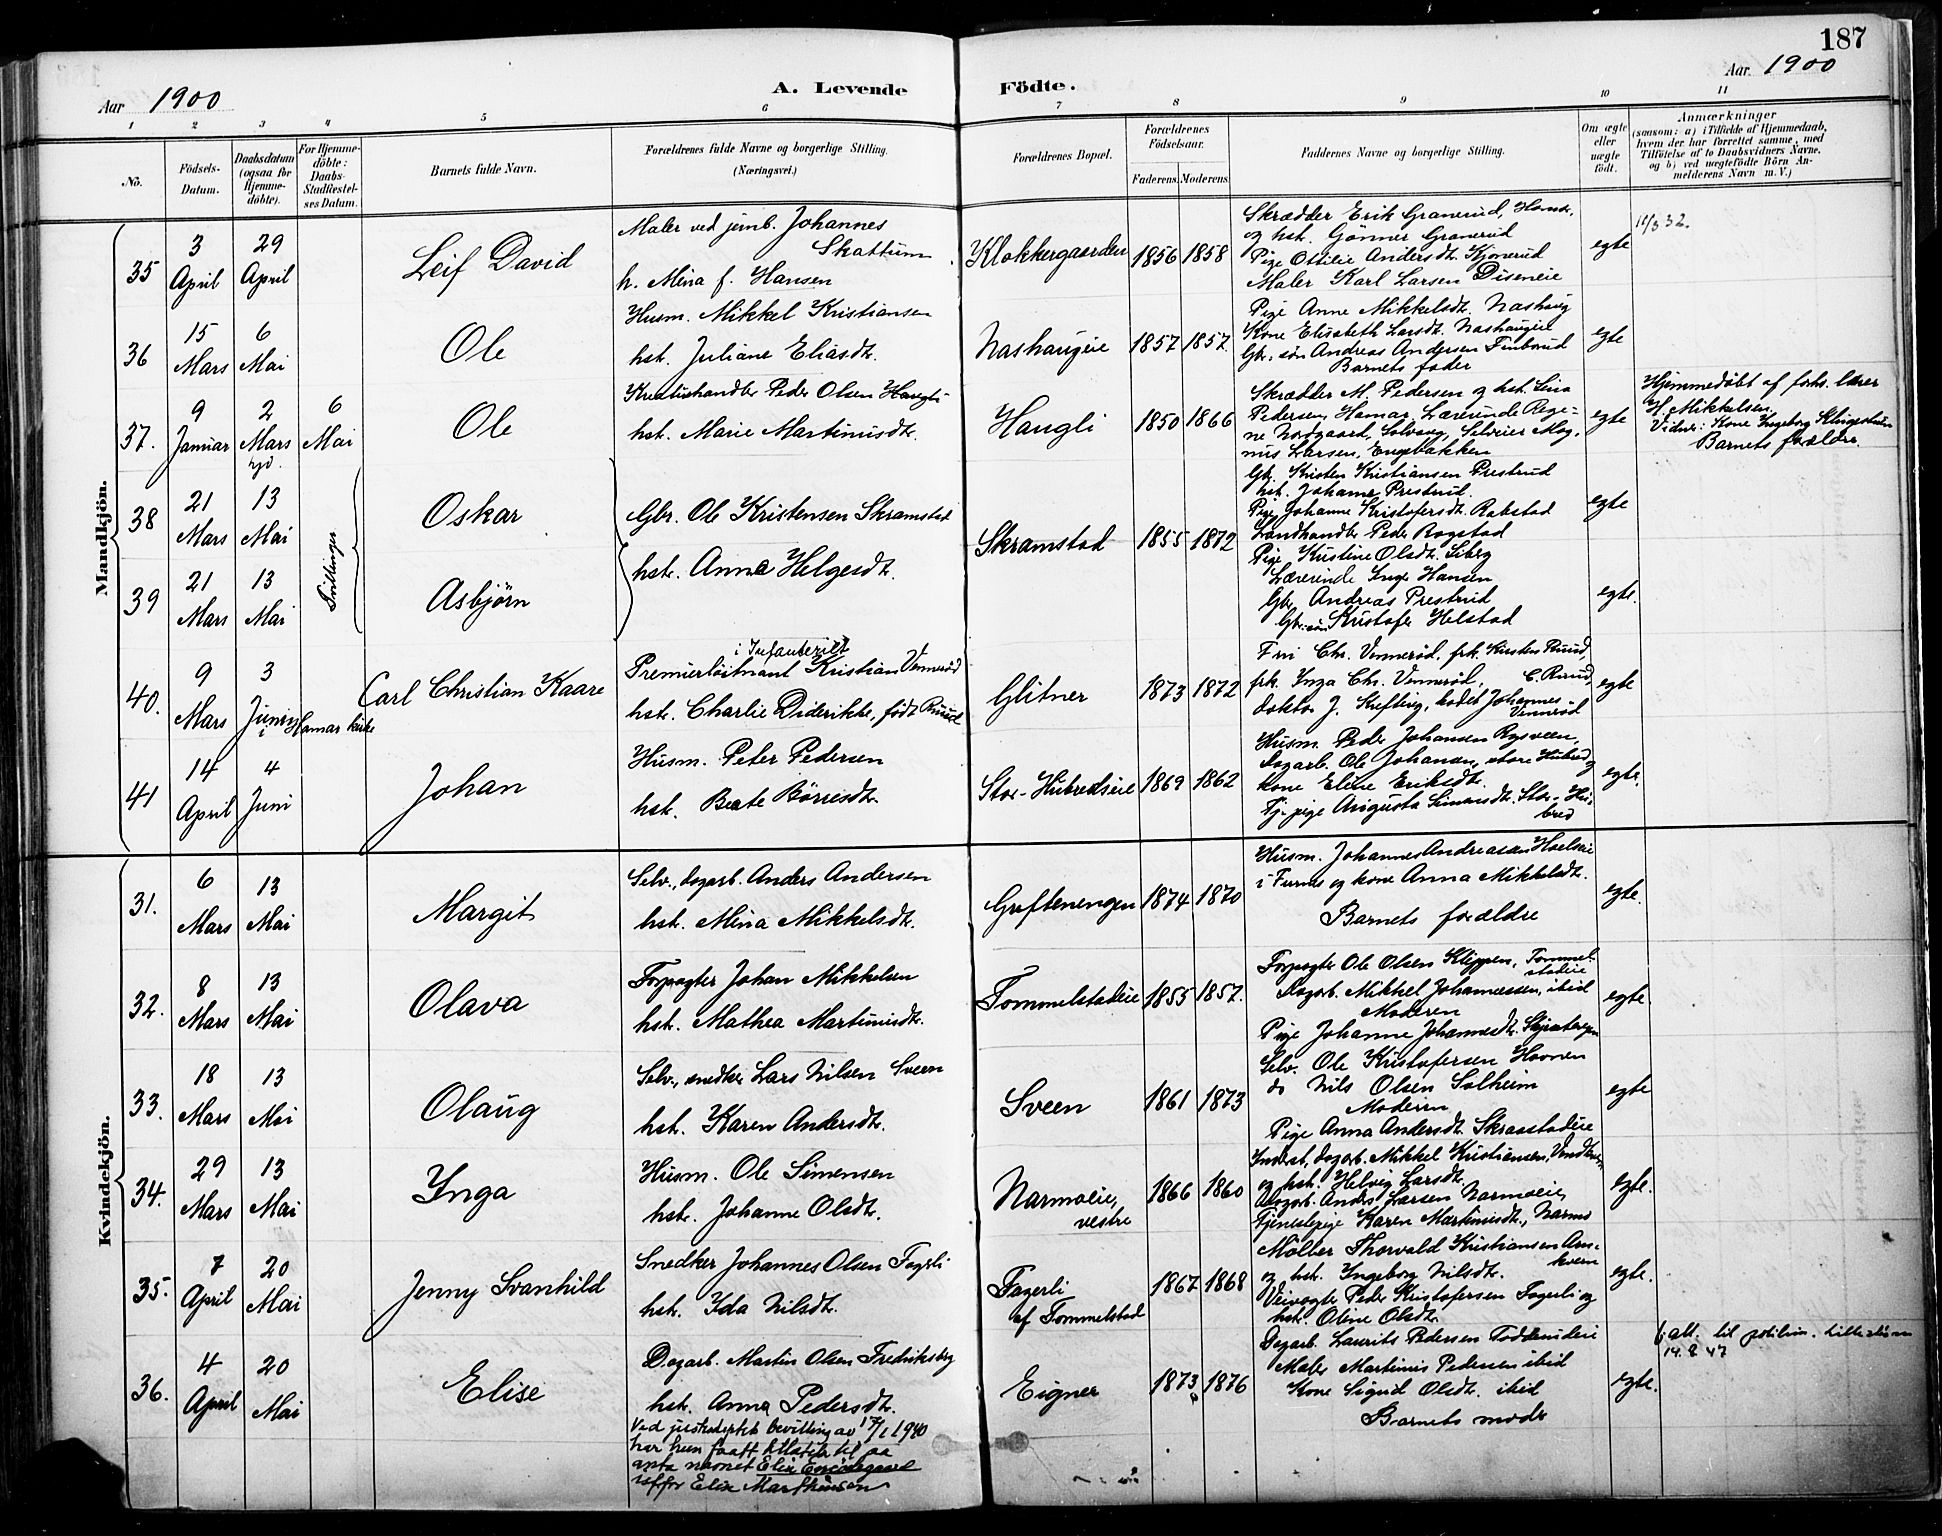 187
Aar 1900
A. Levende Födte.
Aar 1900
1 2 3 4 5 6 7 8 9 10 11
No.
Födsels-Datum.
Daabsdatum (ogsaa for Hjemme-döbte).
For Hjemme-döbte: Daabs-Stadfæstel-ses Datum.
Barnets fulde Navn.
Forældrenes fulde Navne og borgerlige Stilling. (Næringsvei.)
Forældrenes Bopæl.
Forældrenes Födselsaar.
Faderens. Moderens.
Faddernes Navne og borgerlige Stilling.
Om ægte eller uægte födt.
Anmærkninger
(saasom: a) i Tilfælde af Hjemmedaab,
hvem der har forrettet samme, med
Tilföielse af to Daabsvidners Navne.
og b) ved uægtefödte Börn An-
melderens Navn m. V.)
Mandkjön.
35 3 April 29 April Leif David
Maler ved jernb. Johannes
Skattum
h. Mina f. Hansen
Klokkergaarden 1856 1858
Skrædder Erik Granerud, Hamar,
og hst. Gönner Granerud
Pige Ottilie Andersdt. Kjonerud
Maler Karl Larsen Diseneie
egte
36 15 Mars 6 Mai Ole
Husm. Mikkel Kristiansen
hst. Juliane Eliasdt.
Nashaugeie 1857 1857.
Pige Anne Mikkelsdt. Nashaug
Kone Elisabeth Larsdt. Nashaugeie
Gbr. sön Andreas Andersen Finborud
Barnets fader
egte
37. 9 Januar 2 Mars 6 Mai Ole
Kreaturhandler Peder Olsen Haugli
hst. Marie Martinusdt.
Haugli 1850 1866
Skrædder M. Pedersen og hst. Lina
Pedersen, Hamar, Lærerinde Regi-
ne Nordgaard, Solvang, Selveier Mag-
nus Larsen, Engebakken
egte
Hjemmedöbt af forh. lærer
H. Mikkelsen,
Vidner: Kone Ingeborg
Barnets forældre.
38 21 Mars 13 Mai Tvillinger Oskar
Gbr. Ole Kristensen Skramstad
hstr. Anna Helgesdt.
Skramstad 1855 1872
Gbr. Kristen Kristiansen Prestrud
hst. Johanne Prestrud.
Pige Johanne Kristofersdt. Rabstad
Landhandler Peder Rogstad
egte
39 21 Mars 13 Mai Asbjörn
Pige Kristine Olsdt. Siberg
Lærerinde Inga Hansen
Gbr. Andreas Prestrud
Gbr. sön Kristofer Helstad
egte.
40. 9 Mars 3 Juni i Hamar kirke Carl Christian Kaare
i Infanteriet
Premierlöitnant Kristian Vennerød
hst. Charlie Diderikke, født Ruud
Glitner 1873 1872
Fru Chr. Vennerød, frk. Kirsten Ruud,
frk. Inga Chr. Vennerød, C. Ruud
doktor J. Kefting, kadet Johannes
Vennerød
egte
41 14 April 4 Juni Johan
Husm. Peter Pedersen
hst. Beate Börresdt.
Stor-Hubredseie 1869 1862
Husm. Peder Johansen Rysveen,
Dagarb. Ole Johansen, store Hubred og
kone Eline Eriksdt.
Tj. pige Augusta Simensdt. Stor-Hu-
bred
egte.
Kvindekjön.
31. 6 Mars 13 Mai Margit
Selv., dagarb. Anders Andersen
hst. Mina Mikkelsdt.
Greftenengen 1874 1870
Husm. Johannes Andreasen Hoelseie
i Furnes og kone Anna Mikkelsdt.
Barnets forældre
egte.
32. 8 Mars 13 Mai Olava
Forpagter Johan Mikkelsen
hst. Mathea Martinusdt.
Tommelstadeie 1855 1857.
Forpagter Ole Olsen Kleppen, Tommel-
stadeie
Dagarb. Mikkel Johannessen, ibid
Moderen
Pige Johanne Johannesdt.
egte.
33. 18 Mars 13 Mai Olaug
Selv., snedker Lars Nilsen Sveen
hst. Karen Andersdt.
Sveen 1861 1873
Selv. Ole Kristofersen Hornen
do Nils Olsen Solheim
Moderen
Pige Anna Andersdt. Skrasstadeie
egte
34. 29 Mars 13 Mai Inga
Husm. Ole Simensen
hst. Johanne Olsdt.
Narmoeie, vestre 1866 1860
Inderst, dagarb. Mikkel Kristiansen,
og hst. Helvig Larsdt.
Dagarb. Anders Larsen Narmoeie,
Tjenestepige Karen Martinusdt., Narmo
egte.
35. 7 April 20 Mai Jenny Svanhild
Snedker Johannes Olsen Fagerli
hst. Ida Nilsdt.
Fagerli af Tommelstad 1867 1868
Möller Thorvald Kristiansen Aas-
kvern
og hst. Ingeborg Nilsdt.
Veivogter Peder Kristofersen Fagerli og
hst. Oline Olsdt.
egte.
36. 4 April 20 Mai Elise
Dagarb. Martin Olsen Fredriksberg
hst. Anna Pedersdt.
Ved justisdeptets bevilling av 17/1 1940
har hun faatt tillatelse til aa
anta navnet Elise
istfor Elise Marthinsen
Eigner 1873 1876
Dagarb. Laurits Pedersen Toddenudeie
Maler Martinus Pedersen ibid
Kone Sigrid Olsdt. ibid
Barnets moder
egte.
14.8.47